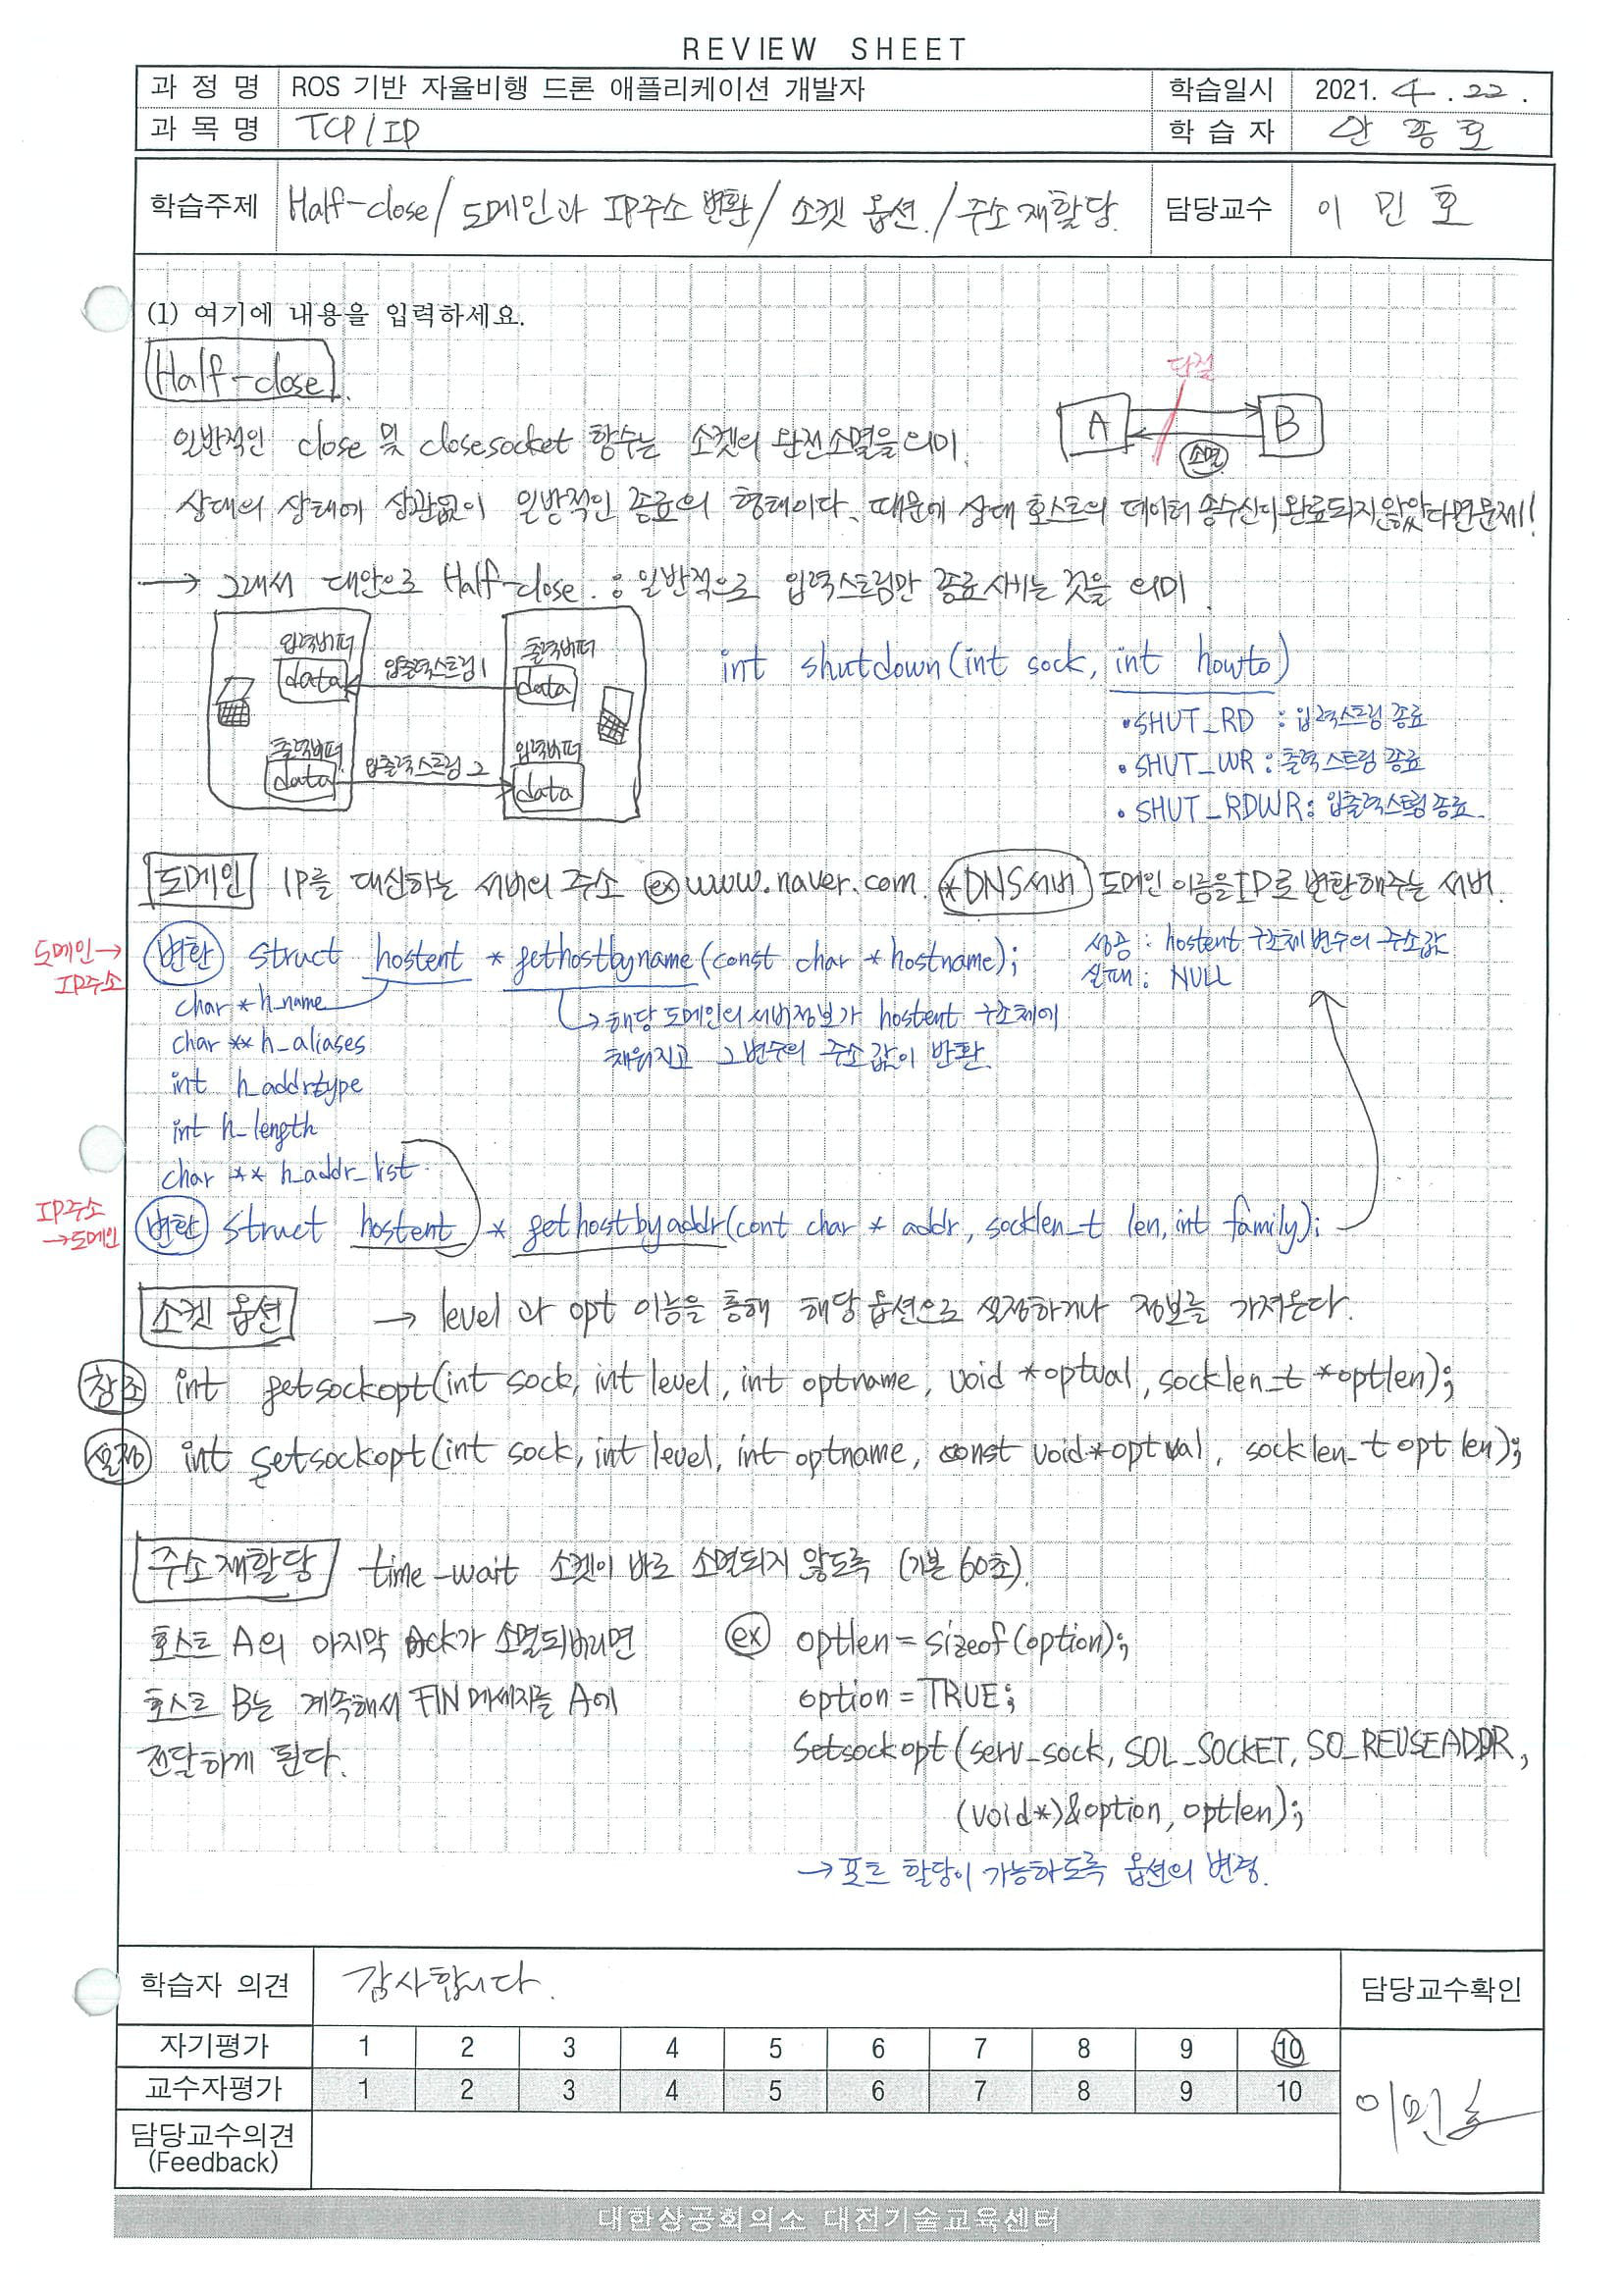 REVIEW SHEET
과 정 명 ROS 기반 자율비행 드론 애플리케이션 개발자 학습일시 2021. 4. 22.
과 목 명 TCP/IP 학 습 자 안 종 호
학습주제 Half-close/ 도메인과 IP주소 변환/ 소켓 옵션/ 주소 재할당 담당교수 이 민 호
(1) 여기에 내용을 입력하세요.
Half-close
단절
A B
소멸
일반적인 close 및 closesocket 함수는 소켓의 완전소멸을 의미.
상대의 상태에 상관없이 일방적인 종료의 형태이다. 때문에 상대 호스트의 데이터 송수신이 완료되지 않았다면 문제!!
→ 그래서 대안으로 Half-close. : 일반적으로 입력스트림만 종료시키는 것을 의미.
입력버퍼 data 입출력스트림1 출력버퍼 data
출력버퍼 data 입출력스트림 2 입력버퍼 data
int shutdown(int sock, int howto)
• SHUT_RD : 입력스트림 종료
• SHUT_WR : 출력스트림 종료
• SHUT_RDWR : 입출력스트림 종료.
도메인 IP를 대신하는 서버의 주소 ex www.naver.com. *DNS서버 도메인 이름을 IP로 변환해주는 서버.
도메인→ IP주소
변환 struct hostent * gethostbyname(const char * hostname);
성공 : hostent 구조체 변수의 주소값
실패 : NULL
char * h_name
→ 해당 도메인의 서버정보가 hostent 구조체에
채워지고 그 변수의 주소값이 반환.
char ** h_aliases
int h_addrtype
int h_length
char ** h_addr_list
IP주소 →도메인
변환 struct hostent * gethostbyaddr(cont char * addr, socklen_t len, int family);
소켓 옵션 → level과 opt 이름을 통해 해당 옵션으로 설정하거나 정보를 가져온다.
참조 int getsockopt(int sock, int level, int optname, void *optval, socklen_t *optlen);
설정 int setsockopt(int sock, int level, int optname, const void*optval, socklen_t optlen);
주소 재할당 time-wait 소켓이 바로 소멸되지 않도록 (기본 60초).
호스트 A의 마지막 Ack가 소멸되버리면
호스트 B는 계속해서 FIN 메세지를 A에
전달하게 된다.
ex optlen = sizeof(option);
option = TRUE;
Setsockopt(serv_sock, SOL_SOCKET, SO_REUSEADDR,
(void*)&option, optlen);
→ 포트 할당이 가능하도록 옵션의 변경.
학습자 의견 감사합니다. 담당교수확인
자기평가 1 2 3 4 5 6 7 8 9 10
교수자평가 1 2 3 4 5 6 7 8 9 10
이민호
담당교수의견
(Feedback)
대한상공회의소 대전기술교육센터